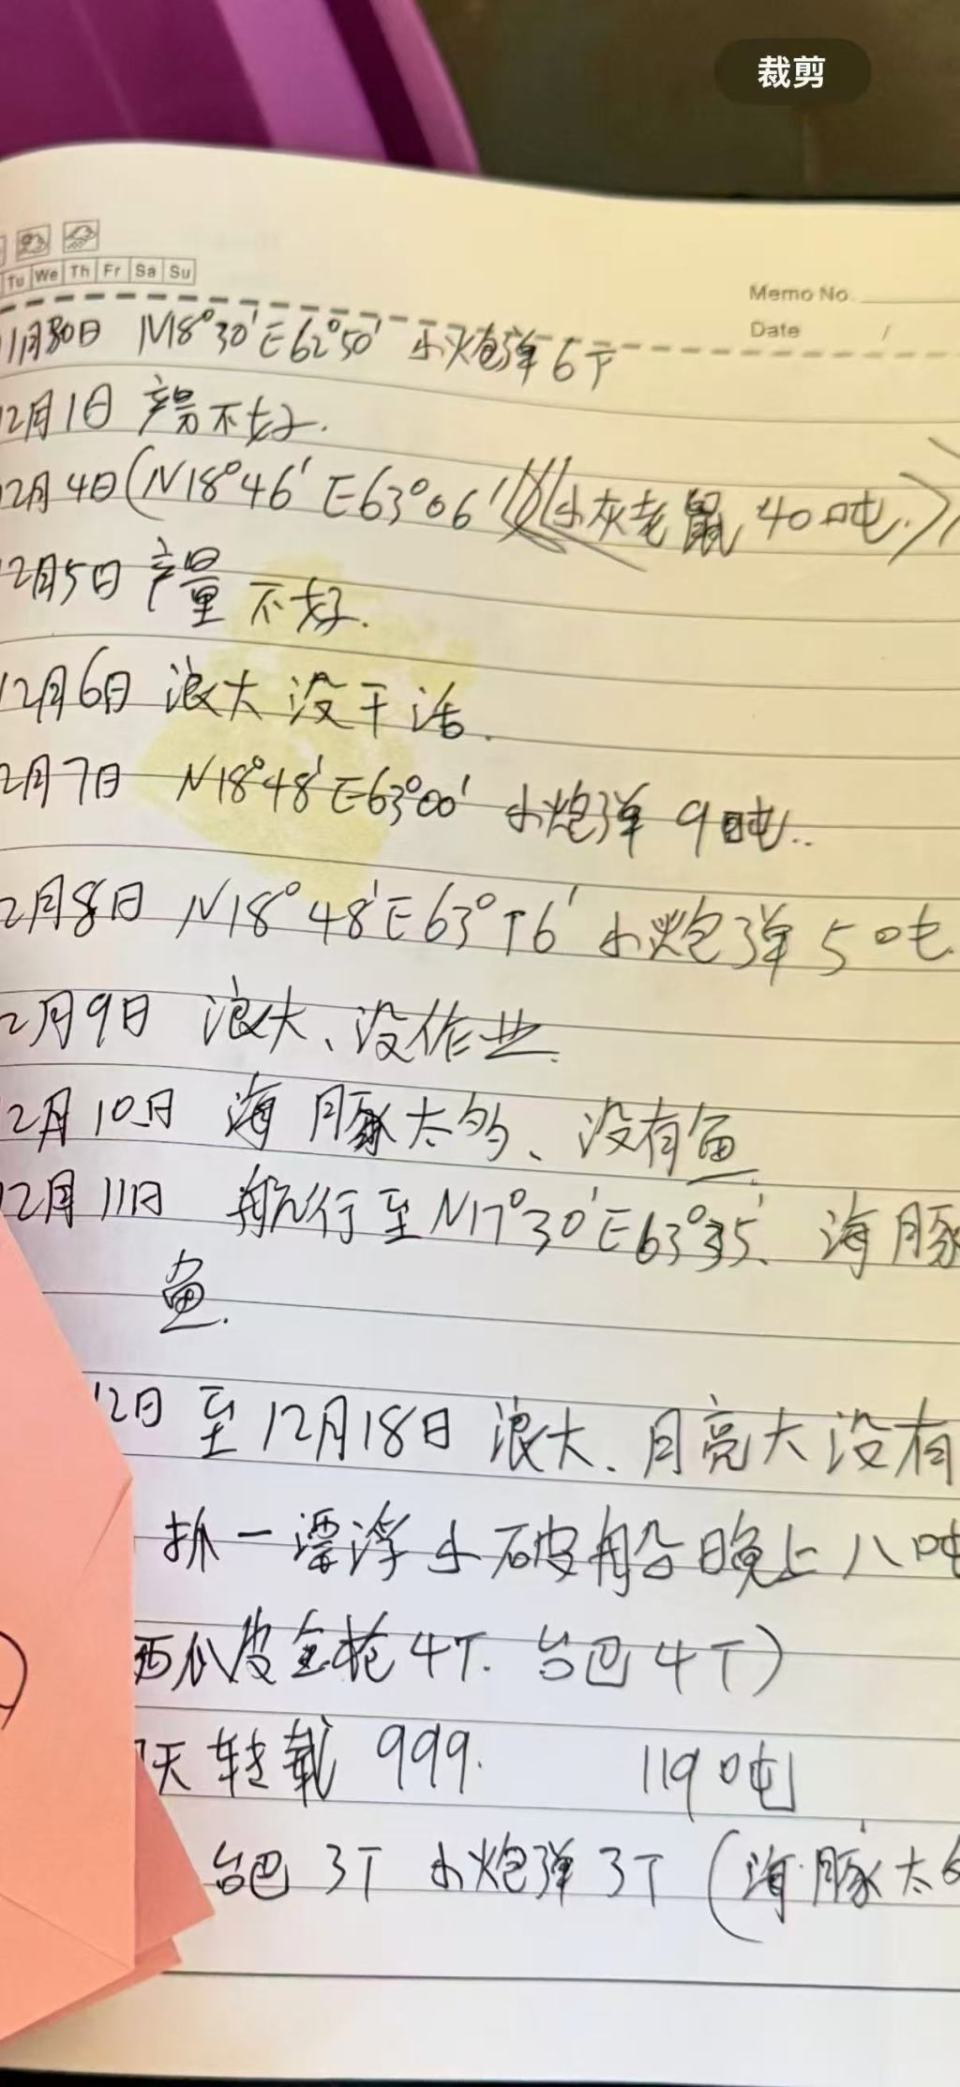 裁剪
Tu We Th Fr Sa Su
Memo No.
Date /
11月30日 N18°30′E62°50′ 小炮弹6T
12月1日 产量不好.
12月4日(N18°46′ E63°06′ (小灰老鼠40吨.)
2月5日 产量不好.
12月6日 浪大没干活.
2月7日 N18°48′E63°00′ 小炮弹 9吨..
2月8日 N18°48′E63°16′ 小炮弹 5吨
2月9日 浪大、没作业.
2月10日 海豚太多、没有鱼.
12月11日 航行至N17°30′E63°35′、海豚
鱼.
12日 至12月18日 浪大、月亮大没有
抓一漂浮小破船晚上八吨
西瓜皮金枪4T. 台巴4T)
天转载 999. 119吨
台巴 3T 小炮弹3T (海豚太多